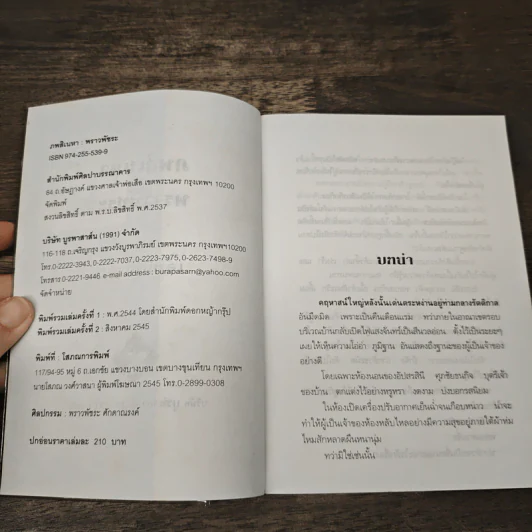 ภพสิเนหา : พราวพัชระ
ISBN 974-255-539-9
สำนักพิมพ์ศิลปาบรรณาคาร
84 ถ.อัษฎางค์ แขวงศาลเจ้าพ่อเสือ เขตพระนคร กรุงเทพฯ 10200
จัดพิมพ์
สงวนลิขสิทธิ์ ตาม พ.ร.บ.ลิขสิทธิ์ พ.ศ.2537
บริษัท บูรพาสาส์น (1991) จำกัด
116-118 ถ.เจริญกรุง แขวงวังบูรพาภิรมย์ เขตพระนคร กรุงเทพฯ10200
โทร.0-2222-3943, 0-2222-7037, 0-2223-7975, 0-2623-7498-9
โทรสาร 0-2221-9446 e-mail address : burapasarn@yahoo.com
จัดจำหน่าย
พิมพ์รวมเล่มครั้งที่ 1 : พ.ศ.2544 โดยสำนักพิมพ์ดอกหญ้ากรุ๊ป
พิมพ์รวมเล่มครั้งที่ 2 : สิงหาคม 2545
พิมพ์ที่ : โสภณการพิมพ์
117/94-95 หมู่ 6 ถ.เอกชัย แขวงบางบอน เขตบางขุนเทียน กรุงเทพฯ
นายโสภณ วงศ์วาสนา ผู้พิมพ์โฆษณา 2545 โทร.0-2899-0308
ศิลปกรรม : พราวพัชระ ศักดาณรงค์
ปกอ่อนราคาเล่มละ 210 บาท
บทนำ
คฤหาสน์ใหญ่หลังนั้นเด่นตระหง่านอยู่ท่ามกลางรัตติกาล
อันมืดมิด เพราะเป็นคืนเดือนแรม ทว่าภายในอาณาเขตรอบ
บริเวณบ้านกลับเปิดไฟแสงจันทร์เป็นสีนวลอ่อน ตั้งไว้เป็นระยะๆ
เผยให้เห็นความโอ่อ่า ภูมิฐาน อันแสดงถึงฐานะของผู้เป็นเจ้าของ
อย่างดี
โดยเฉพาะห้องนอนของอัปสรสินี ศุภชัยธนกิจ บุตรีเจ้า
ของบ้าน ตกแต่งไว้อย่างหรูหรา งดงาม บ่งบอกรสนิยม
ในห้องเปิดเครื่องปรับอากาศเย็นฉ่ำจนเกือบหนาว น่าจะ
ทำให้ผู้เป็นเจ้าของห้องหลับใหลอย่างมีความสุขอยู่ภายใต้ผ้าห่ม
ไหมสักหลาดผืนหนานุ่ม
ทว่ามิใช่เช่นนั้น